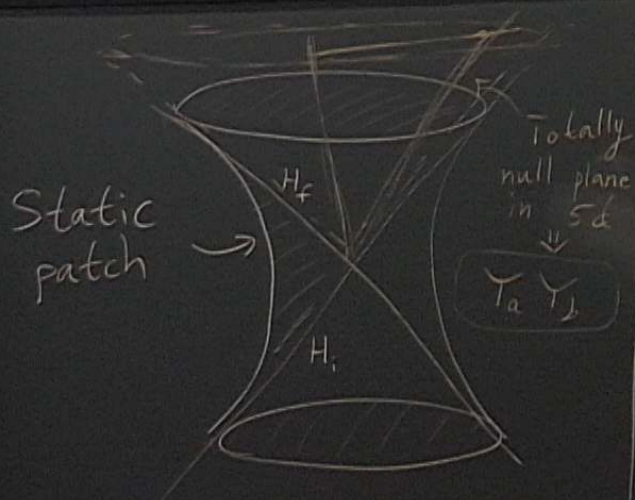 Static
patch
H_f
H_i
Totally
null plane
in 5d
⇓
Y_a Y_b